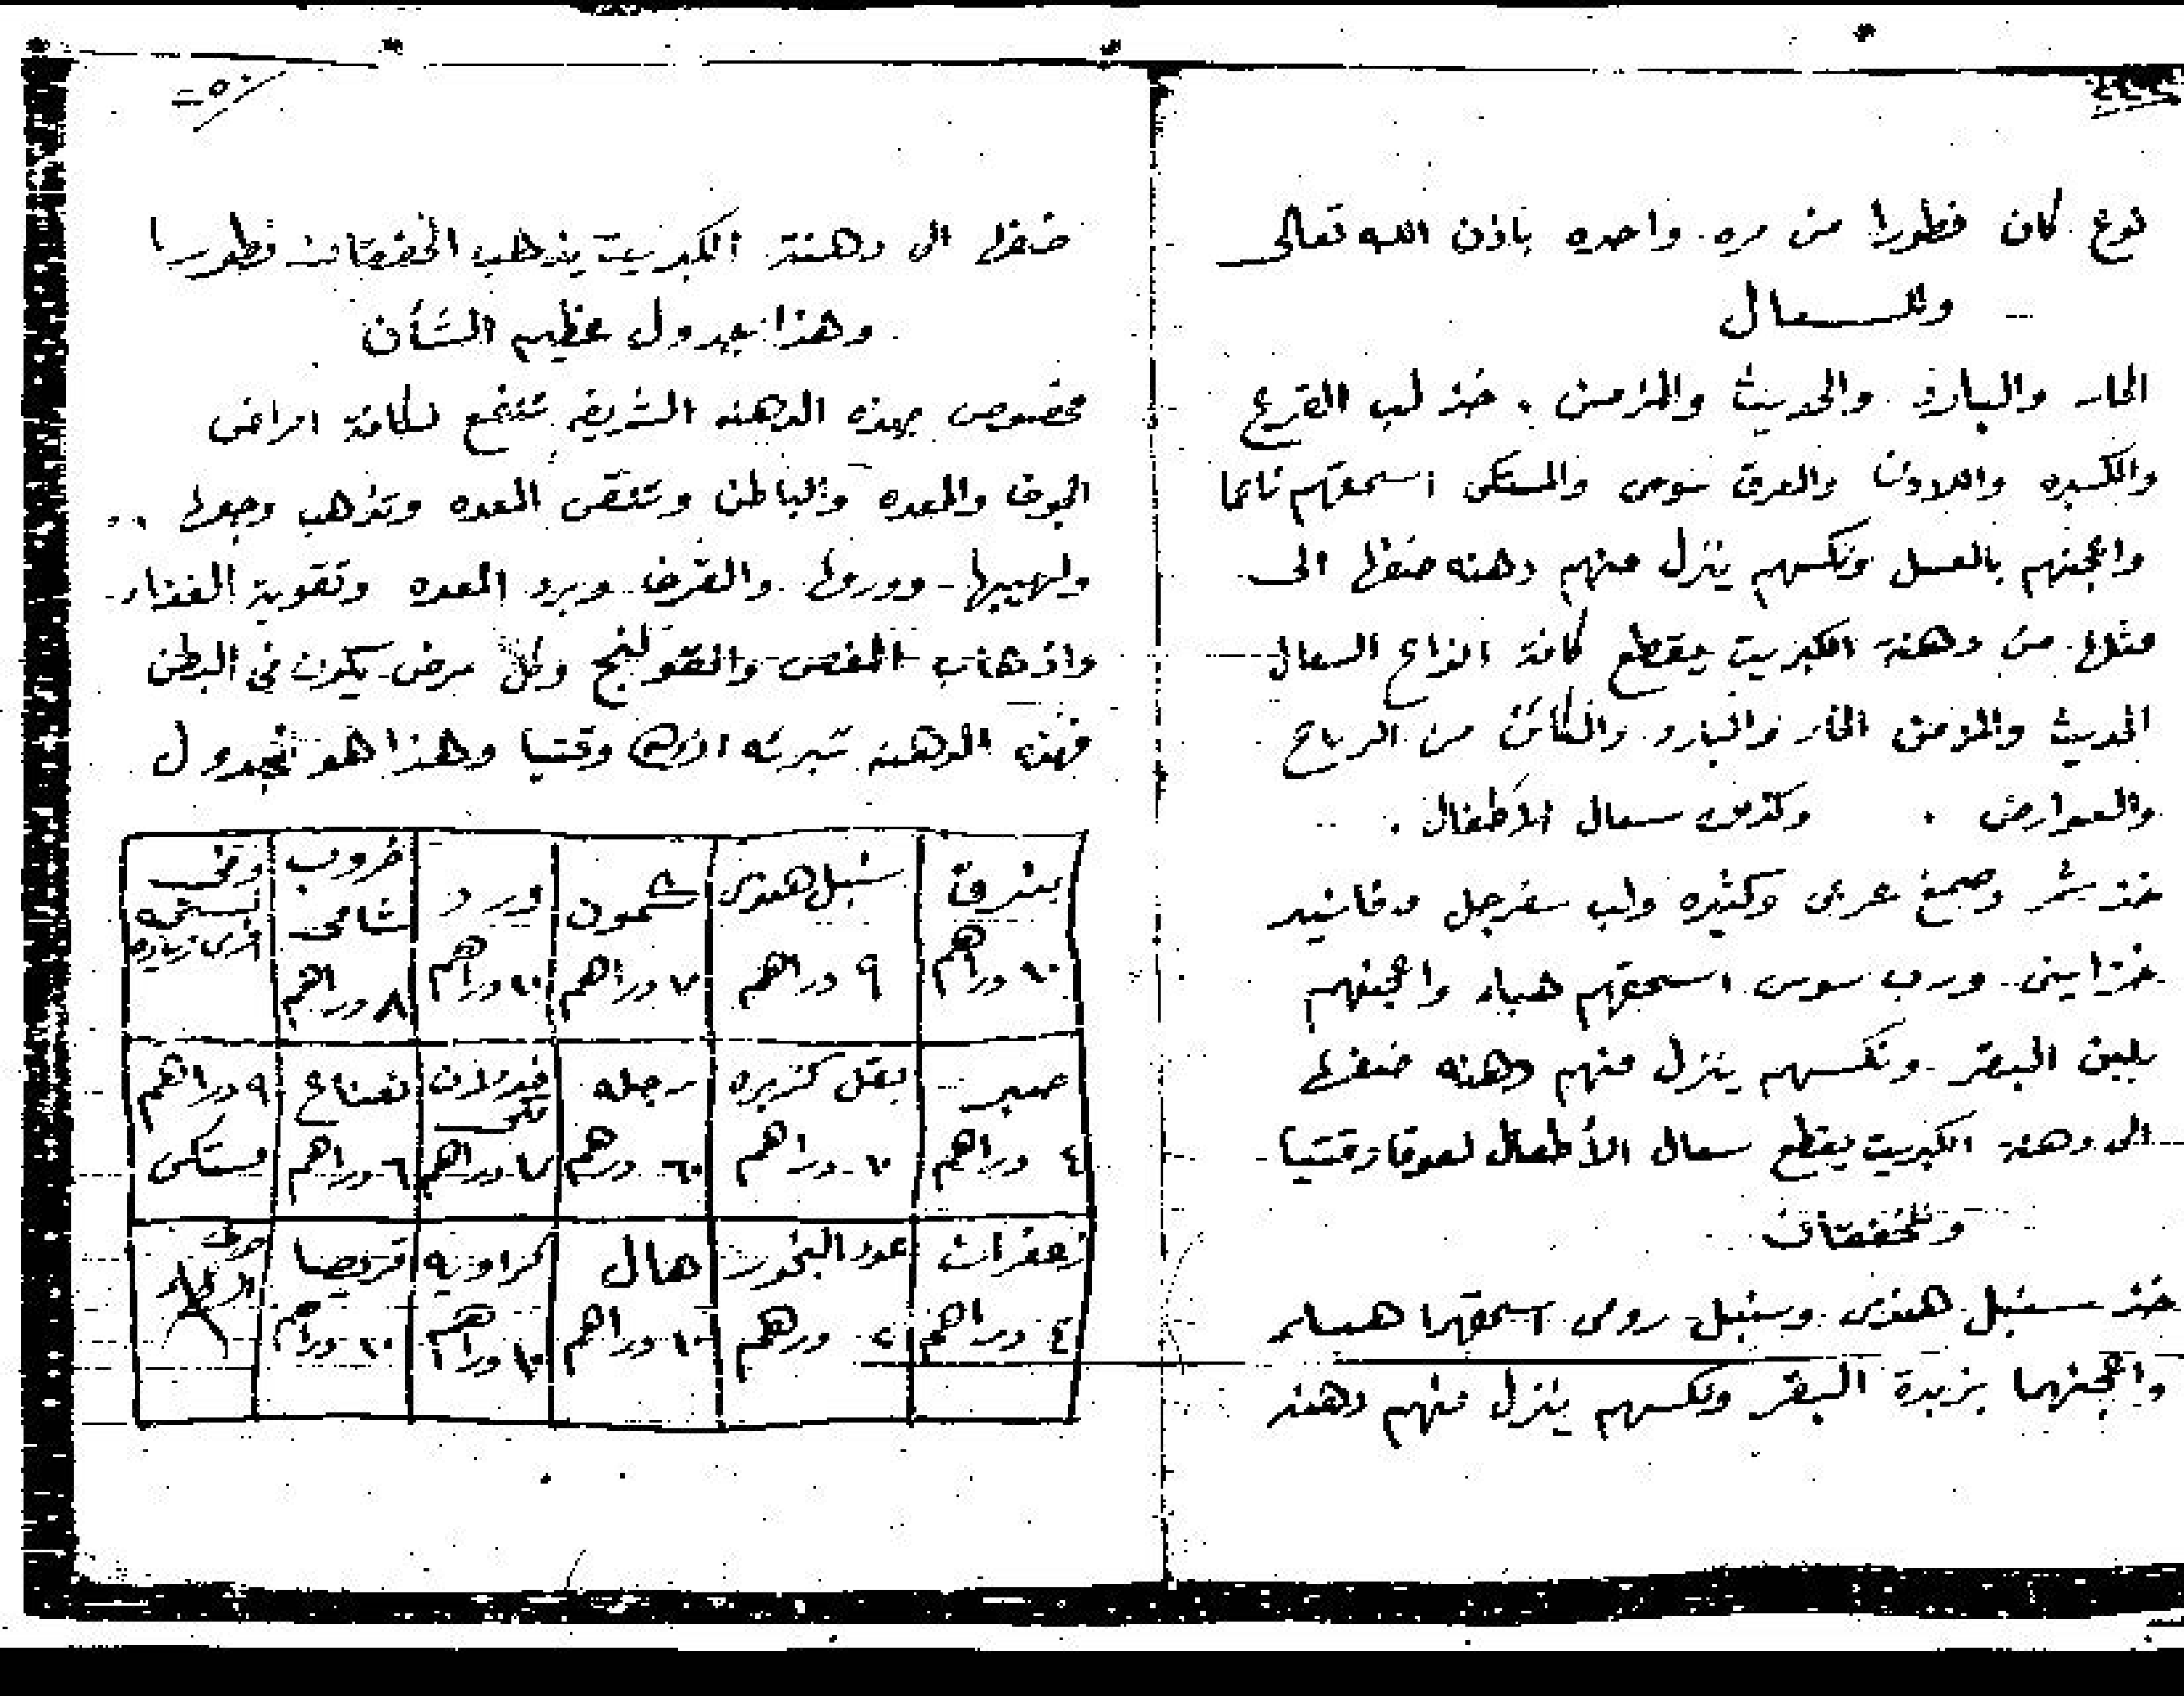 نوع كان فطورا من مره واحده باذن الله تعالى
وللسعال
الحار والبارد والحديث والمزمن . خذ لب القرع
والكسبره واللادن والعرق سوس والمستكى اسحقهم ناعما
واعجنهم بالعسل ونكسهم ينزل منهم دهنه ضفها الى
مثلها من دهنة الكبريت يقطع كافة انواع السعال
الحديث والمزمن الحار والبارد والكائن من الرياح
والعوارض . وكذلك سعال الأطفال .
خذ شمر وصمغ عربى وكثيره ولب سفرجل وفانيد
خزاينى ورب سوس اسحقهم هباء واعجنهم
بلبن البقر ونكسهم ينزل منهم دهنه ضفها
الى دهنة الكبريت يقطع سعال الأطفال لعوقا وقتيا
وللخفقان
خذ سنبل هندى وسنبل رومى اسحقهما هباء
واعجنهما بزبدة البقر ونكسهم ينزل منهم دهنه
ضفها الى دهنة الكبريت يذهب الخفقان فطورا
وهذا جدول عظيم الشأن
مخصوص بهذه الدهنه الشريفه تنفع لكافة امراض
الجوف والمعده والباطن وتنقى المعده وتذهب وجعها ..
ولهيبها وورمها والقرف وبرد المعده وتقوية الغذاء
واذهاب المغص والقولنج وكل مرض يكون فى البطن
فهذه الدهنه تبرئه وقتيا وهذا هو الجدول
سنبل هندى كمون ورد خروب شامى وفى نسخه اخرى زياده
١٠ دراهم ٩ دراهم ٧ دراهم ١٠ دراهم ٨ دراهم
صبر بقل كزبره رجله نعناع ٩ دراهم
٤ دراهم ٧ دراهم ٦٠ درهم ٧ دراهم ٦ دراهم مستكى
زعفران عود البخور هال كراويه
٤ دراهم ٢ درهم ١٠ دراهم ١٠ دراهم ١٠ دراهم